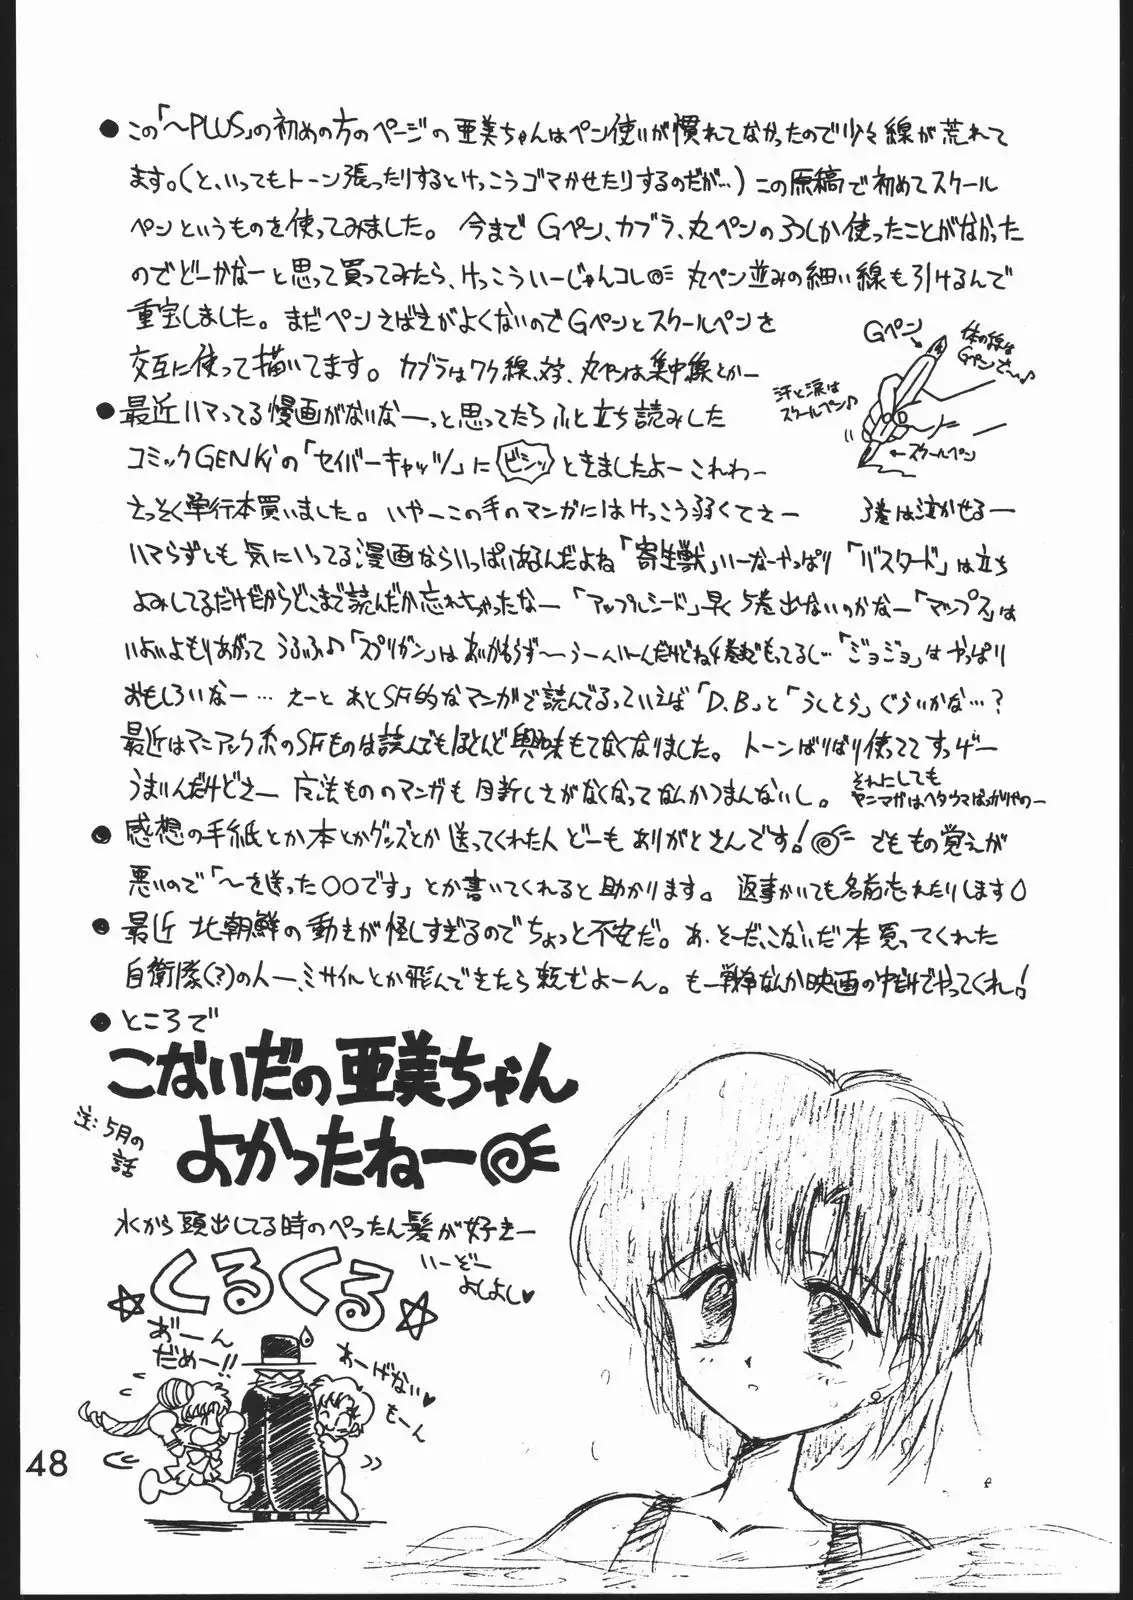 ●この「～PLUS」の初めの方のページの亜美ちゃんはペン使いが慣れてなかったので少々線が荒れて
ます。(と、いってもトーン張ったりするとけっこうゴマかせたりするのだが…)この原稿で初めてスクール
ペンというものを使ってみました。今までGペン、カブラ、丸ペンの3つしか使ったことがなかった
のでどーかなーと思って買ってみたら、けっこういーじゃんコレ 丸ペン並みの細い線も引けるんで
重宝しました。まだペンさばきがよくないのでGペンとスクールペンを
交互に使って描いてます。カブラはワク線、丸ペンは集中線とかー
Gペン
体の線は
Gペンでー♪
汗と涙は
スクールペン♪
←スクールペン
●最近ハマってる漫画がないなーっと思ってたらふと立ち読みした
コミックGENKiの「セイバーキャッツ」にビシッときましたよーこれわー
さっそく単行本買いました。いやーこの手のマンガにはけっこう弱くてさー 3巻は泣かせるー
ハマらずとも気にいってる漫画ならいっぱいあるんだよね「寄生獣」いーなーやっぱり「バスタード」は立ち
よみしてるだけだからどこまで読んだか忘れちゃったなー「アップルシード」早く5巻出ないのかなー「マップス」は
いよいよもりあがってうふふ♪「スプリガン」はあいかもらず～うーんいーんだけどね4巻までもってるし…「ジョジョ」はやっぱり
おもしろいなー…えーとあとSF的なマンガで読んでるっていえば「D.B」と「うしとら」ぐらいかな…?
最近はマニアック系のSFものは読んでもほとんど興味もてなくなりました。トーンばりばり使っててすっげー
うまいんだけどさー 魔法もののマンガも目新しさがなくなってなんかつまんないし。
それにしても
ヤンマガはヘタウマばっかりやのー
●感想の手紙とか本とかグッズとか送ってくれた人どーもありがとさんです! でももの覚えが
悪いので「～を送った○○です」とか書いてくれると助かります。返事かいても名前忘れたりします
●最近北朝鮮の動きが怪しすぎるのでちょっと不安だ。あ、そーだ、こないだ本買ってくれた
自衛隊(?)の人ー、ミサイルとか飛んできたら頼むよーん。もー戦争なんか映画の中だけでやってくれ!
●ところで
こないだの亜美ちゃん
よかったねー
注:5月の
話
水から頭出してる時のぺったん髪が好きー
くるくる
いーどー
よしよし♥
あ゛ーん
だめー!!
あーげない♥
もーん
48